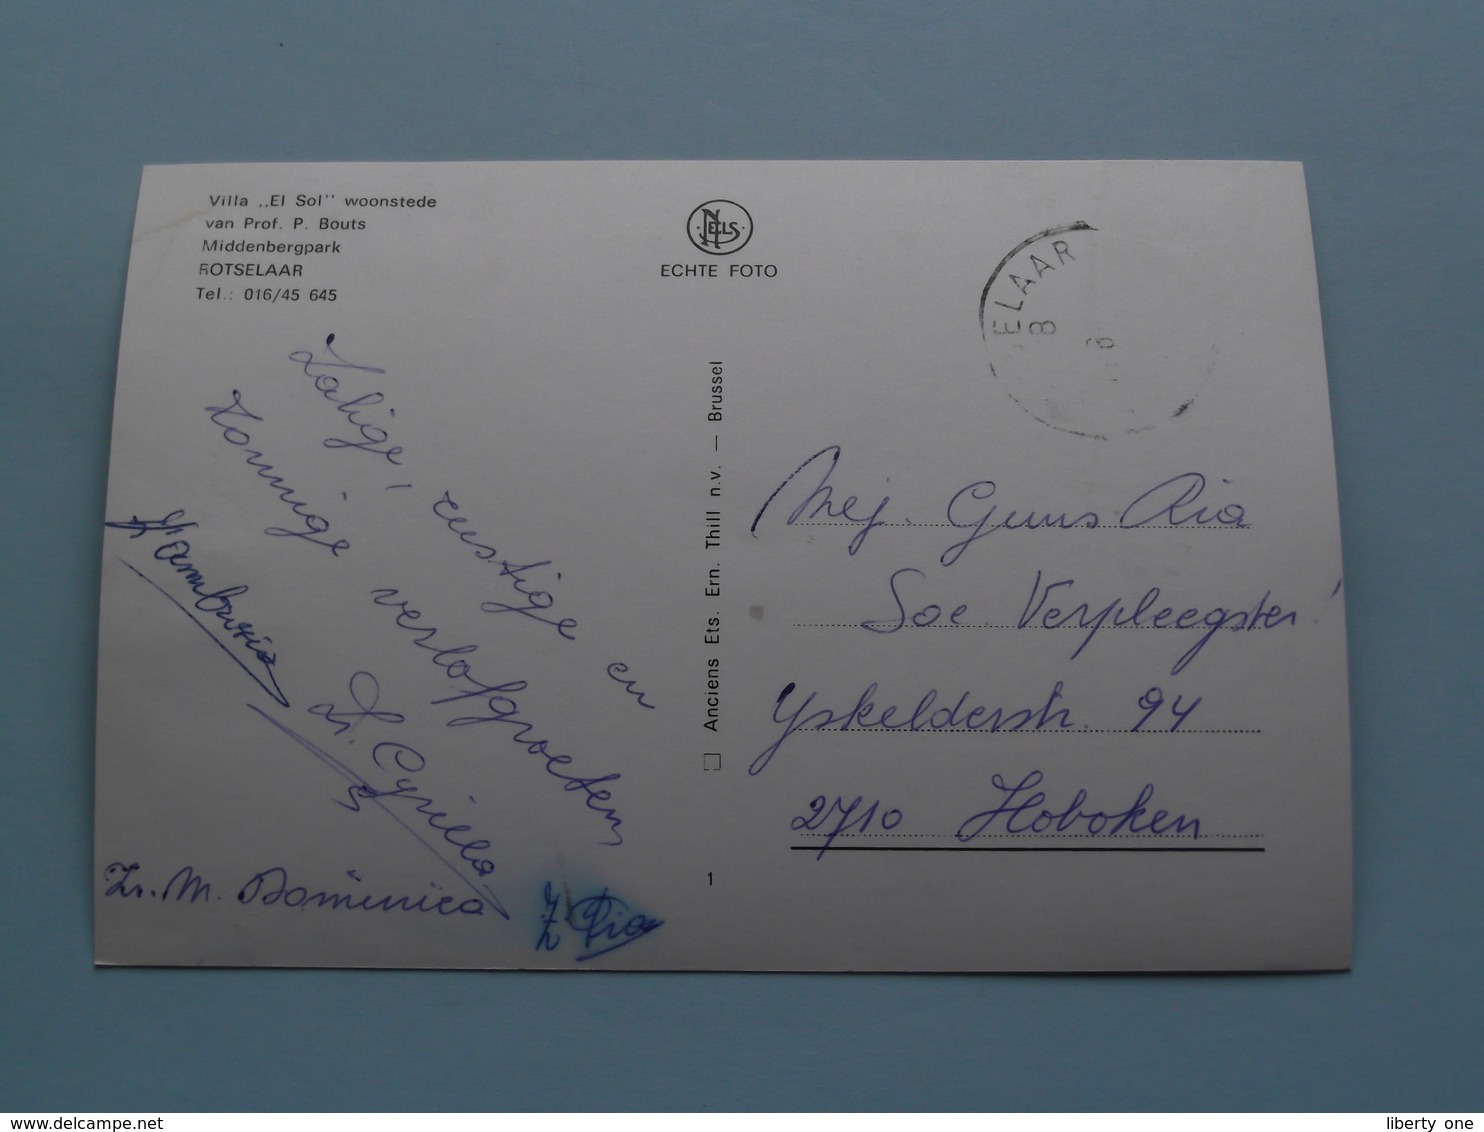 Villa „El Sol" woonstede
van Prof. P. Bouts
Middenbergpark
ROTSELAAR
Tel.: 016/45 645
NELS
ECHTE FOTO
ELAAR
8
8
Zalige, rustige en
zonnige verlofgroeten,
Zr. Cyrilla
Zr. M. Dominica
Z Ria
Anciens Ets. Ern. Thill n.v. — Brussel
1
Mej. Guns Ria
Soc. Verpleegster!
Yskelderstr. 94
2710 Hoboken
liberty one